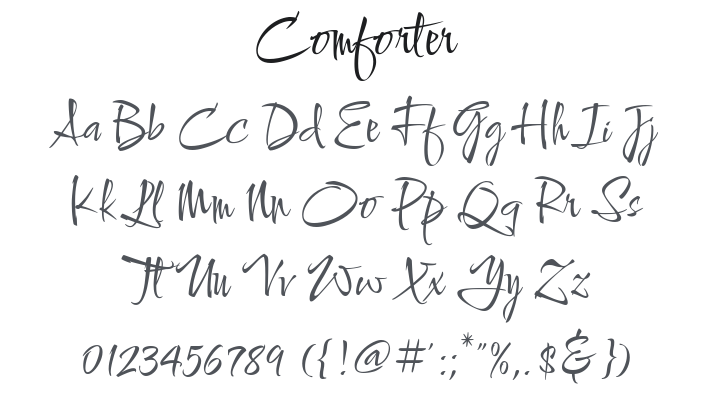 Comforter
Aa Bb Cc Dd Ee Ff Gg Hh Ii Jj
Kk Ll Mm Nn Oo Pp Qq Rr Ss
Tt Uu Vv Ww Xx Yy Zz
0123456789 ({!@#':;*"%,.$&})